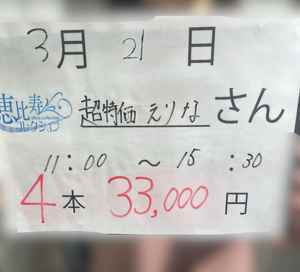 3月 21 日
恵比寿
超特価 えりな さん
11:00 ~ 15:30
4本 33,000円